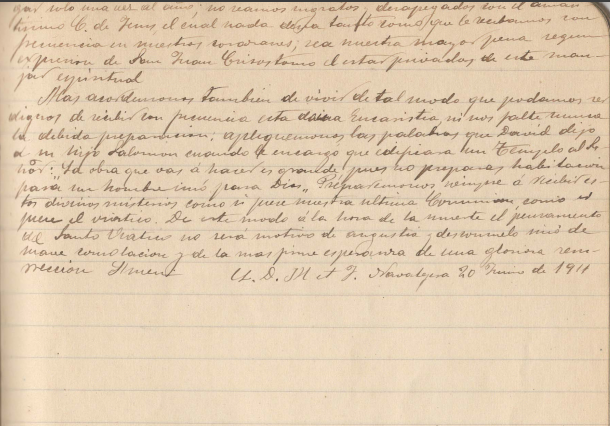 gar solo una vez al año; no seamos ingratos, desapegados con el aman
tísimo C. de Jesus, el cual nada desea tanto como que le recibamos con
frecuencia en nuestros corazones; sea nuestra mayor pena segun
expresion de San Juan Crisostomo el estar privados de este man
jar espiritual
Mas acordemonos tambien de vivir de tal modo que podamos ser
dignos de recibir con frecuencia esta divina Eucaristia, ni nos falte nunca
la debida preparacion; apliquemonos las palabras que David dijo
á su hijo Salomon cuando le encargó que edificara un Templo al Se
ñor: "La obra que vas á hacer es grande, pues no preparas habitacion
para un hombre sinó para Dios" Preparemonos siempre á recibir es
tos divinos misterios como si fuere nuestra ultima Comunion, como si
fuere el viatico. De este modo á la hora de la muerte el pensamiento
del Santo Viatico no será motivo de angustia y desconsuelo sinó de
suave consolacion y de la mas firme esperanza de una gloriosa resu
rreccion Amen
A. D. M et J. 20 Junio de 1911